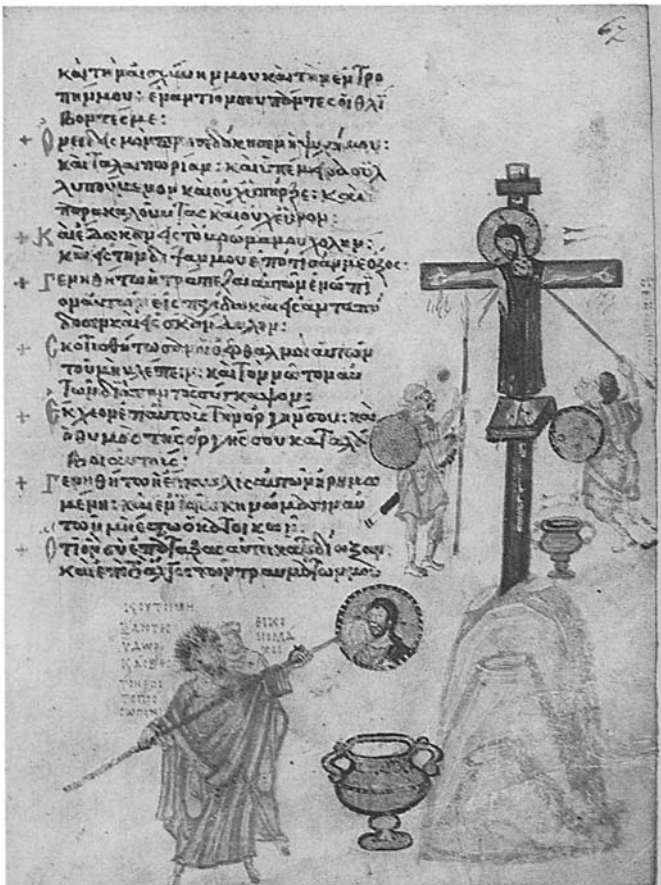 67
καὶ τὴν αἰσχύνην μου καὶ τὴν ἐντρο
πήν μου: ἐναντίον σου πάντες οἱ θλί
βοντές με:
+ Ὀνειδισμὸν προσεδόκησεν ἡ ψυχή μου:
καὶ ταλαιπωρίαν: καὶ ὑπέμεινα συλ
λυπούμενον καὶ οὐχ ὑπῆρξε: καὶ
παρακαλοῦντας καὶ οὐχ εὗρον:
+ Καὶ ἔδωκαν εἰς τὸ βρῶμα μου χολήν:
καὶ εἰς τὴν δίψαν μου ἐπότισάν με ὄξος:
+ Γενηθήτω ἡ τράπεζα αὐτῶν ἐνώπι
ον αὐτῶν εἰς παγίδα καὶ εἰς ἀνταπό
δοσιν καὶ εἰς σκάνδαλον:
+ Σκοτισθήτωσαν οἱ ὀφθαλμοὶ αὐτῶν
τοῦ μὴ βλέπειν: καὶ τὸν νῶτον αὐ
τῶν διὰ παντὸς σύγκαμψον:
+ Ἔκχεον ἐπ' αὐτοὺς τὴν ὀργήν σου: καὶ
ὁ θυμὸς τῆς ὀργῆς σου καταλά
βοι αὐτούς:
+ Γενηθήτω ἡ ἔπαυλις αὐτῶν ἠρημω
μένη: καὶ ἐν τοῖς σκηνώμασιν αὐ
τῶν μὴ ἔστω ὁ κατοικῶν:
+ Ὅτι ὃν σὺ ἐπάταξας αὐτοὶ κατεδίωξαν:
καὶ ἐπὶ τὸ ἄλγος τῶν τραυμάτων μου
ΞΑΝΤΕΣ
ΥΔΩΡ
ΕΙΚΟ
ΝΟΜΑ
ΧΟΙ